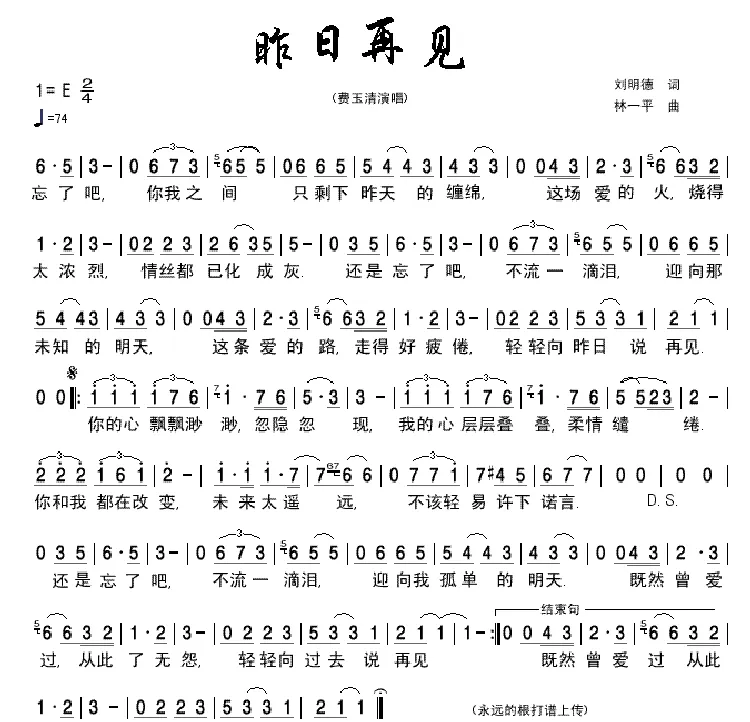 昨日再见
1= E 2/4
(费玉清演唱)
刘明德 词
林一平 曲
♩=74
6·5 | 3– | 0 673 | 5 655 | 0665 | 5443 | 433 | 0 043 | 2·3 | 5 6 632 |
忘了吧, 你我之间 只剩下昨天的缠绵, 这场爱的火,烧得
1·2 | 3– | 0223 | 2635 | 5– | 035 | 6·5 | 3– | 0 673 | 5 655 | 0665 |
太浓烈, 情丝都已化成灰. 还是忘了吧, 不流一滴泪, 迎向那
5443 | 433 | 0 043 | 2·3 | 5 6 632 | 1·2 | 3– | 0223 | 5331 | 211 |
未知的明天, 这条爱的路,走得好疲倦, 轻轻向昨日说再见.
0 0 ‖: 111 176 | 7 1· 76 | 5·3 | 3– | 111 176 | 7 1· 76 | 5523 | 2– |
你的心飘飘渺渺,忽隐忽现, 我的心层层叠叠,柔情缱绻.
222 161 | 2– | 1·11·7 | 7 67 6 6 | 0 771 | 7#45 | 677 | 0 0 | 0 0 |
你和我都在改变, 未来太遥远, 不该轻易许下诺言. D.S.
035 | 6·5 | 3– | 0 673 | 5 655 | 0665 | 5443 | 433 | 0 043 | 2·3 |
还是忘了吧, 不流一滴泪, 迎向我孤单的明天. 既然曾爱
结束句
5 6 632 | 1·2 | 3– | 0223 | 5331 | 211 | 1– :‖ 0 043 | 2·3 | 5 6 632 |
过, 从此了无怨, 轻轻向过去说再见 既然曾爱过从此
1·2 | 3– | 0223 | 5331 | 211 | 1 ‖
(永远的根打谱上传)